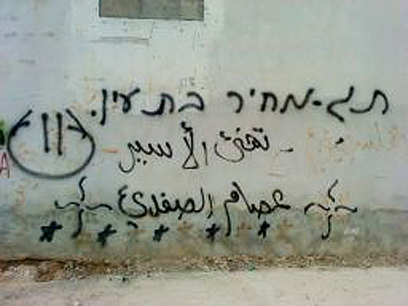 תג-מחיר בת עין.
تهنئ الأسير
عصام الصفدي